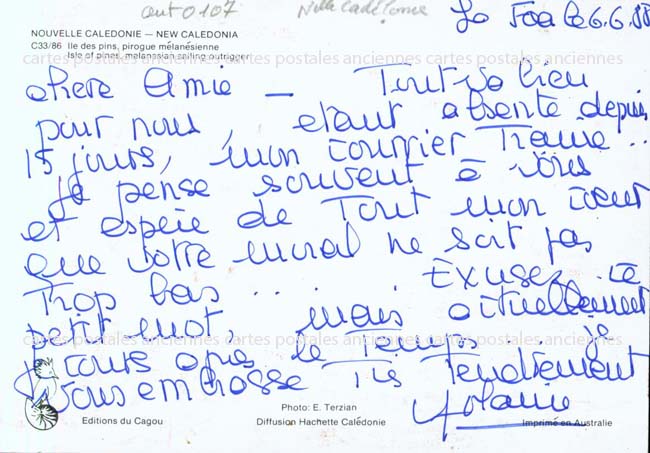 cent 0107 Nlle Calédonie
La Foa le 6.6.88
NOUVELLE CALEDONIE — NEW CALEDONIA
C33/86 Ile des pins, pirogue mélanésienne
Isle of pines, melanesian sailing outrigger
cartes postales anciennes cartes postales anciennes cartes postales anciennes
chere Amie — Tout va bien
pour nous, etant absente depuis
15 jours, mon courrier Traine ..
Je pense souvent à vous
et espère de Tout mon cœur
que votre moral ne soit pas
Trop bas ... . Exusez ce
petit mot, mais actuellement
cartes postales anciennes cartes postales anciennes cartes postales anciennes
je cours apres le Temps . je
vous embrasse Tres Tendrement
Yolaine
Photo: E. Terzian
Editions du Cagou Diffusion Hachette Calédonie Imprimé en Australie